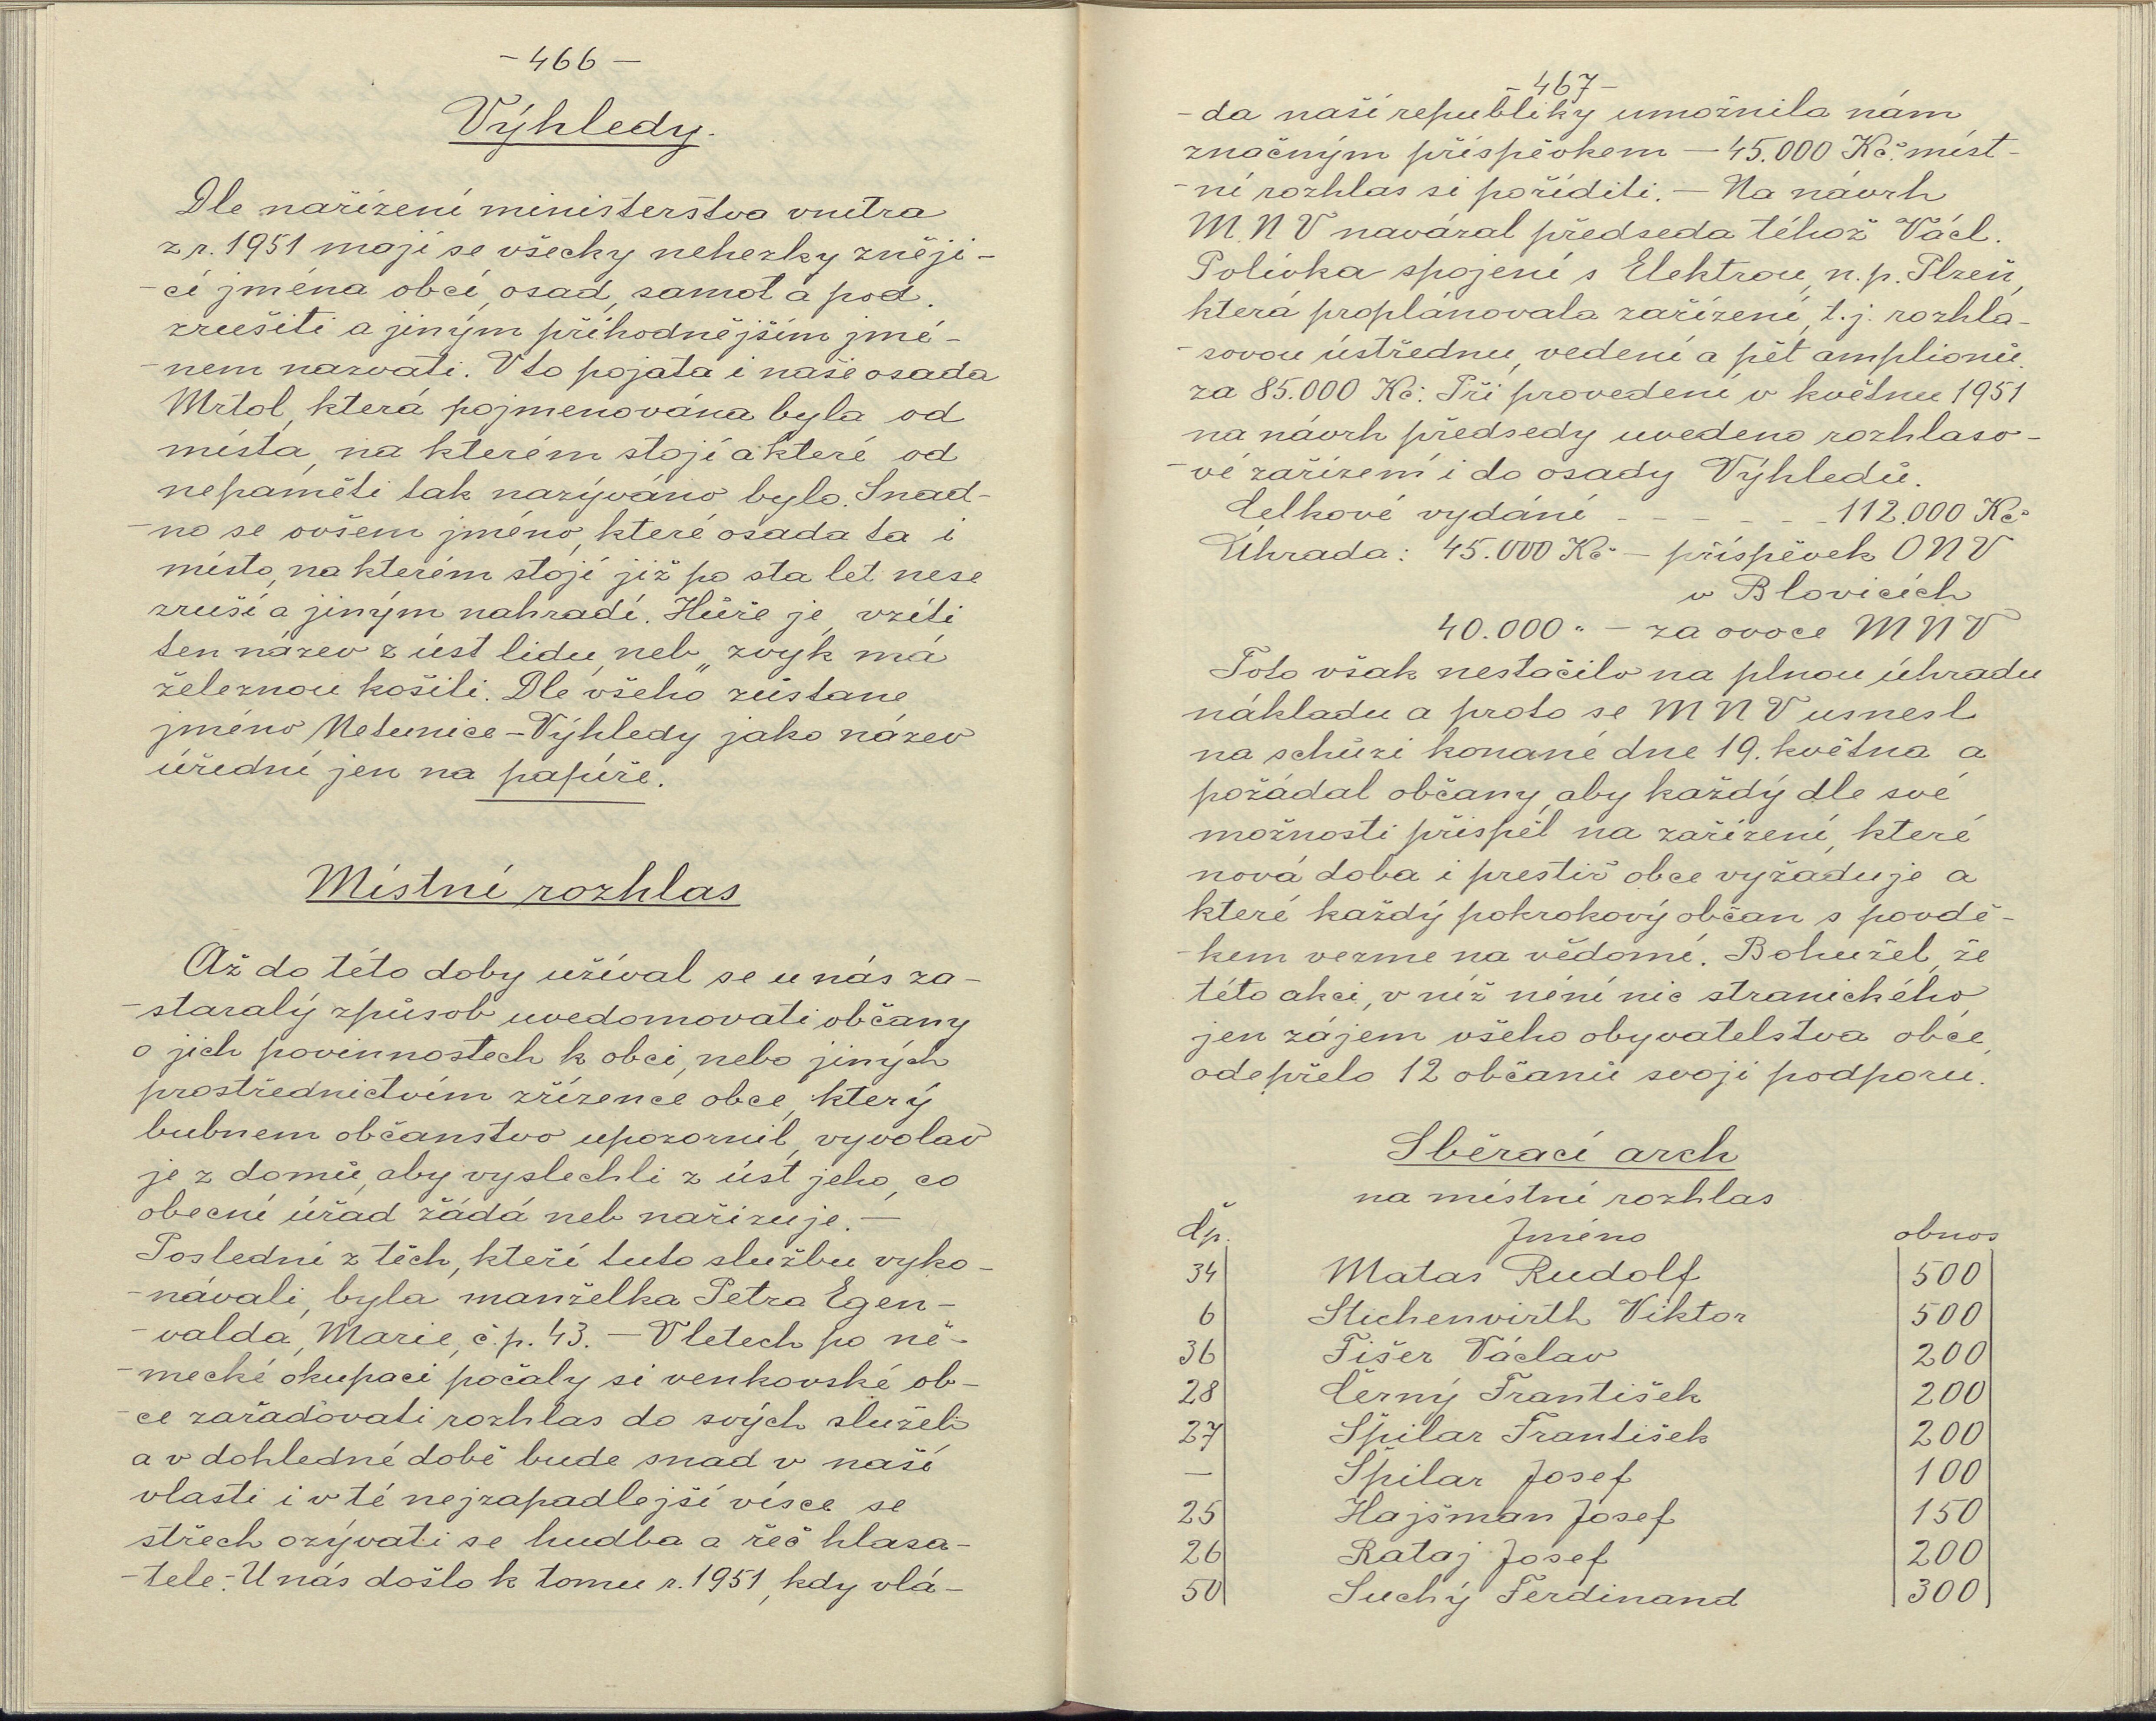 - 466 -
Výhledy.
Dle nařízení ministerstva vnitra
z r. 1951 mají se všecky nehezky znějí-
-cí jména obcí, osad, samot a pod.
zrušiti a jiným příhodnějším jmé-
-nem nazvati. V to pojata i naše osada
Mrtol, která pojmenována byla od
místa, na kterém stojí a které od
nepaměti tak nazýváno bylo. Snad-
-no se ovšem jméno, které osada ta i
místo, na kterém stojí již po sta let nese
zruší a jiným nahradí. Hůře je, vzíti
ten název z úst lidu, neb „zvyk má
železnou košili." Dle všeho zůstane
jméno Netunice-Výhledy jako název
úřední jen na papíře.
Místní rozhlas
Až do této doby užíval se u nás za-
-staralý způsob uvedomovati občany
o jich povinnostech k obci, nebo jiných
prostřednictvím zřízence obce, který
bubnem občanstvo upozornil, vyvolav
je z domů, aby vyslechli z úst jeho, co
obecní úřad žádá neb nařizuje. -
Poslední z těch, kteří tuto službu vyko-
-návali, byla manželka Petra Egen-
-valda, Marie, č.p. 43. - V letech po ně-
-mecké okupaci počaly si venkovské ob-
-ce zařaďovati rozhlas do svých služeb
a v dohledné době bude snad v naší
vlasti i v té nejzapadlejší vísce se
střech ozývati se hudba a řeč hlasa-
-tele. - U nás došlo k tomu r. 1951, kdy vlá-
- 467 -
-da naší republiky umožnila nám
značným příspěvkem - 45.000 Kč. míst-
-ní rozhlas si poříditi. - Na návrh
M.N V navázal předseda téhož Václ.
Polívka spojení s Elektrou, n. p. Plzeň,
která proplánovala zařízení, t. j. rozhla-
-sovou ústřednu, vedení a pět amplionů
za 85.000 Kč. Při provedení v květnu 1951
na návrh předsedy uvedeno rozhlaso-
-vé zařízení i do osady Výhledů.
Celkové vydání - - - - - - 112.000 Kč
Úhrada: 45.000 Kč - příspěvek O N V
v Blovicích
40.000 " - za ovoce M N V
Toto však nestačilo na plnou úhradu
nákladu a proto se M N V usnesl
na schůzi konané dne 19. května a
požádal občany, aby každý dle své
možnosti přispěl na zařízení, které
nová doba i prestiž obce vyžaduje a
které každý pokrokový občan s povdě-
-kem vezme na vědomí. Bohužel, že
této akci, v níž néní nic stranického
jen zájem všeho obyvatelstva obce,
odepřelo 12 občanů svoji podporu.
Sběrací arch
na místní rozhlas
Čp. Jméno obnos
34 Matas Rudolf 500
6 Stichenwirth Viktor 500
36 Fišer Václav 200
28 Černý František 200
27 Špilar František 200
— Špilar Josef 100
25 Hajšman Josef 150
26 Rataj Josef 200
50 Suchý Ferdinand 300